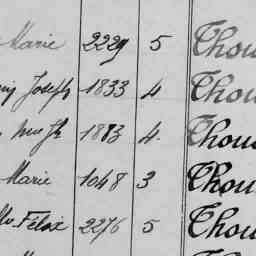 Marie 2229 5 Thou
Joseph 1833 4 Thou
1873 4. Thou
Marie 1048 3 Thou
Félix 2276 5 Thou